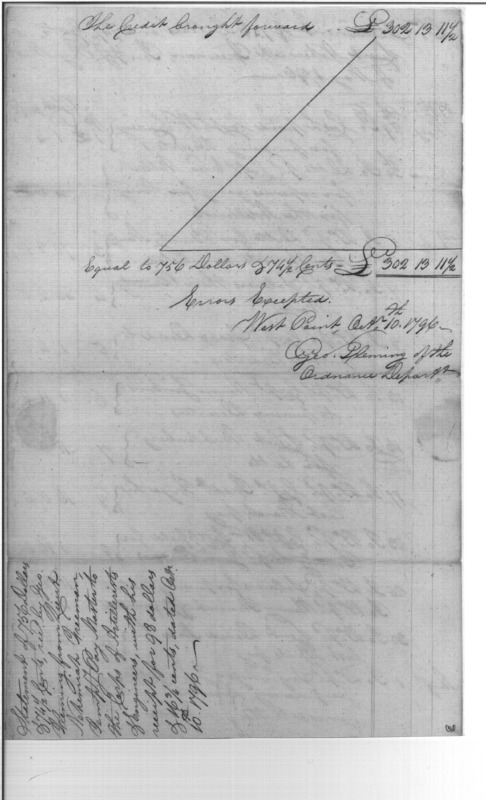 The Credit brought forward .. £ 302 13 11½
Equal to 756 Dollars & 74½ Cents = £ 302 13 11½
Errors Excepted.
West Point, Octr. 10th. 1796 –
Geo. Fleming of the
Ordnance Departt.
Statement of 756 Dollars
& 74½ Cents, recd. by Geo.
Fleming from
Nehemiah Freeman,
Pay Master to
the Corps of Artillerists
& Engineers, with his
receipt for 98 dollars
& 16½ cents, dated Octr.
10th. 1796 –